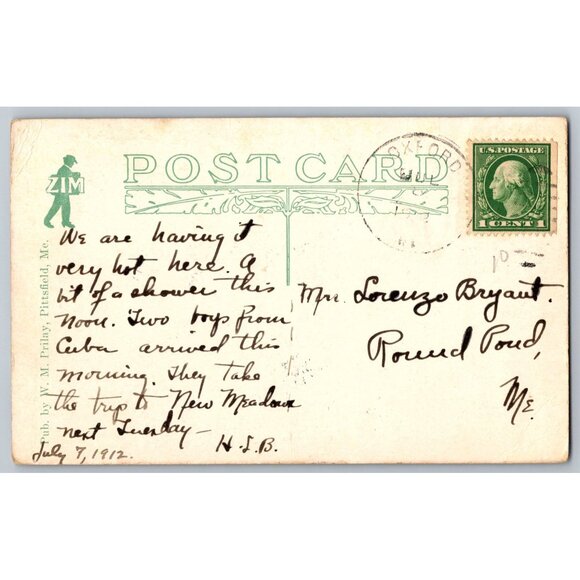 POST CARD
ZIM
OXFORD
U.S. POSTAGE
1 CENT 1
We are having it
very hot here. A
bit of a shower this
Noon. Two boys from
Cuba arrived this
morning. They take
the trip to New Meadows
next Tuesday—
H.L.B.
July 7, 1912.
Mrs. Lorenzo Bryant.
Round Pond,
Me.
Pub. by W. M. Prilay, Pittsfield, Me.